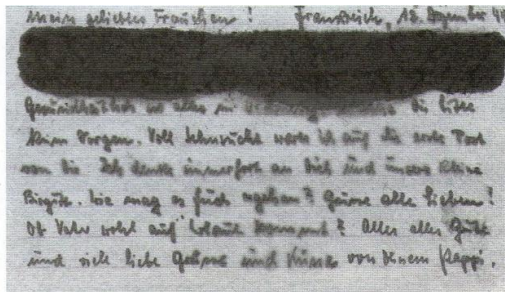 Mein geliebtes Frauchen! Frankreich, 18. Dezember 4
Gesundheitlich ist alles in bitte
keine Sorgen. Voll Sehnsucht warte ich auf die erste Post
von Dir. Ich denke immerfort an Dich und unsere kleine
Birgitt. Wie mag es Euch ergehen? Grüsse alle Lieben!
Ob Vater wohl auf Urlaub kommt? Alles alles Gute
und viele liebe Grüsse und Küsse von Deinem Pappi.